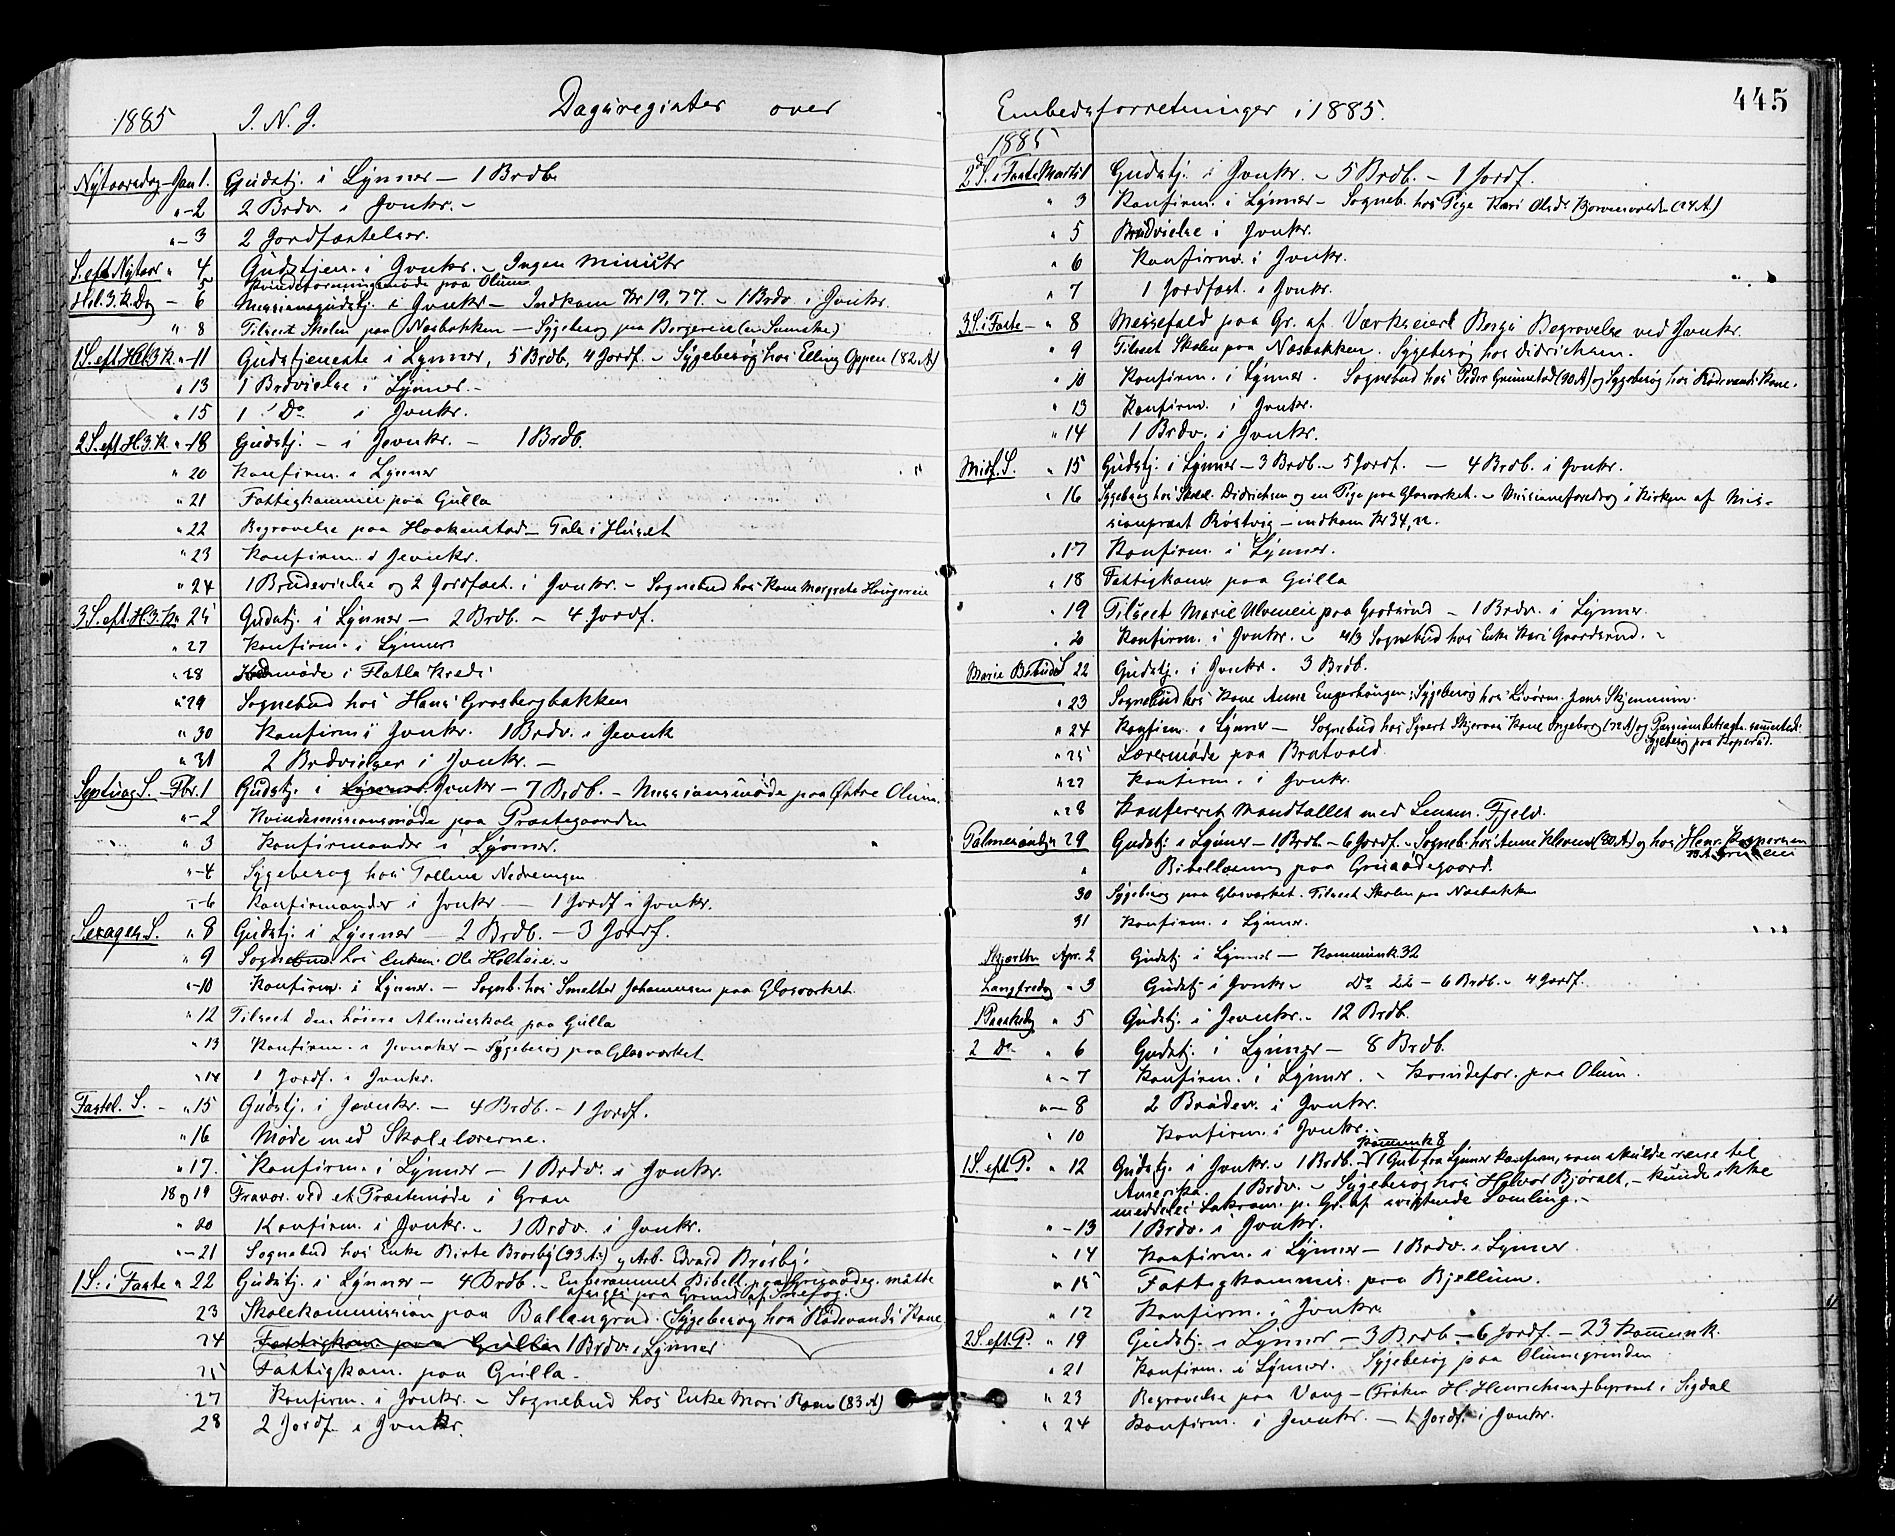 1885 I. N. J. Dagsregister over
Nytaarsdag - Jan 1. Gudstj. i Lynner - 1 Brdb.
" - 2 2 Brdv. i Jvnkr. -
" - 3 2 Jordfæstelser.
S. eft Nytaar " 4 Gudstjen. i Jvnkr. - Ingen Ministr
5 Kvindeforeningsmøde paa Olum
Hel. 3. K. Dag - 6 Missionsgudstj. i Jvnkr - Indkom Kr 19,77. - 1 Brdv i Jvnkr.
" 8 Tilseet Skolen paa Næsbakken - Sygebesøg paa Borgereie (en Svenske)
1 S. eft Hel 3 K. " - 11 Gudstjeneste i Lynner, 5 Brdb, 4 Jordf. - Sygebesøg hos Elling Oppen (82 A)
" 13 1 Brdvielse i Lynner -
" 15 1 Do i Jvnkr.
2 S. eft H. 3. K. " - 18 Gudstj. - i Jevnkr. - 1 Brdb.
" 20 Konfirm. i Lynner
" 21 Fattigkommis paa Gulla
" 22 Begravelse paa Haakenstad - Tale i Huset
" 23 Konfirm. i Jevnkr.
" 24 1 Brudevielse og 2 Jordfæst. i Jvnkr. - Sognebud hos Kone Margrete Haugereie
3 S. eft. H. 3. K. " 25 Gudstj. i Lynner - 2 Brdb. - 4 Jordf.
" 27 Konfirm. i Lynner
" 28 møde i Flatla Kreds
" 29 Sognebud hos Hans Grosbergbakken
" 30 Konfirm i Jvnkr. 1 Brdv. i Jevnk
" 31 2 Brdvielser i Jvnkr. -
Septuag S. - Fbr. 1 Gudstj. i Lynner Jvnkr - 7 Brdb. - Missionsmøde paa Østre Olum.
" - 2 Kvindemissionsmøde paa Præstegaarden
" 3 Konfirmander i Lynner.
" - 4 Sygebesøg hos Tolline Nedreengen
" - 6 Konfirmander i Jvnkr - 1 Jordf i Jvnkr.
Sexages S. " 8 Gudstj. i Lynner - 2 Brdb. - 3 Jordf.
" 9 Sognebud hos Enkem. Ole Holteie. -
" - 10 Konfirm. i Lynner. - Sognb. hos Smelter Johannesen paa Glasværket
" 12 Tilseet den høiere Almueskole paa Gulla
" 13 Konfirm. i Jevnaker - Sygebesøg paa Glasværket
" 14 1 Jordf. i Jvnkr.
Fastel. S. - " 15 Gudstj. i Jævnkr. - 4 Brdb. - 1 Jordf.
" 16 Møde med Skolelærerne.
" 17. Konfirm. i Lynner - 1 Brdv. i Jvnkr
18 og 19 Fravær. ved et Præstemøde i Gran
" 20 Konfirm. i Jvnkr. - 1 Brdv. i Jvnkr.
" - 21 Sognebud hos Enke Birte Brørby (93 A.) og Arb. Edvard Brørby.
1 S. i Faste " 22 Gudstj. i Lynner - 4 Brdb. - En berammet Bibell. paa Grinaadeg. måtte
afsiges paa Grund af Snefog.
23 Skolekommission paa Ballangrud. (Sygebesøg hos Rødevands Kone)
24 Fattigkom paa Gulla 1 Brdv. i Lynner
25 Fattigkom. paa Gulla -
27 Konfirm. i Jvnkr. - Sognebud hos Enke Mari Roen (83 A)
28 2 Jordf i Jvnkr.
445
Embedsforretninger i 1885.
1885
2 S. i Faste Marts 1 Gudstj. i Jvnkr. - 5 Brdb. - 1 Jordf.
" 3 Konfirm. i Lynner - Sogneb. hos Pige Kari Olsd.
" 5 Brudvielse i Jvnkr.
" 6 Konfirm. i Jvnkr.
" 7 1 Jordfæst. i Jvnkr.
3 S. i Faste - " 8 Messefald paa Gr. af Værkseierl Bergs Begravelse ved Jvnkr.
" 9 Tilseet Skolen paa Næsbakken. Sygebesøg hos Didrichsen.
" 10 Konfirm. i Lynner. Sognebud hos Peder Grimstad (90 A) og Sygebesøg hos Rødevands Kone.
" 13 Konfirm. i Jvnkr.
" 14 1 Brdv. i Jvnkr.
Midf. S. " 15 Gudstj. i Lynner - 3 Brdb. - 5 Jordf. - 4 Brdb. i Jvnkr.
" 16 Sygebesøg hos Skoel. Didrichsen og en Pige paa Glasværket. - Missionsforedrag i Kirken af Mis-
sionspræst Røstvig - indkom Kr 34,
" 17 Konfirm. i Lynner.
" 18 Fattigkom paa Gulla
" 19 Tilseet Marie Ulveneie paa Grodsrud - 1 Brdv. i Lynner.
" 20 Konfirm. i Jvnkr. - Sognebud hos Enke Kari Gaardsrud. -
Marie Bebud S 22 Gudstj. i Jvnkr. 3 Brdb.
" 23 Sognebud hos Kone Anne Engerhaugen; Sygebesøg hos Livørm. Jens Skjennum.
" 24 Konfirm. i Lynner - Sognebud hos Syvert Skjervas Kone Ingeborg (72 A) og Passionsbetragtn. sammesteds
Sygebesøg paa Koperud.
" 25 Lærermøde paa Bratvold
" 27 Konfirm. i Jvnkr.
" 28 Konfereret Mandtallet med Lensm. Fjeld.
Palmesöndag 29 Gudstj. i Lynner - 1 Brdb. - 6 Jordf. - Sogneb. hos Anne Kleven (80 A) og hos Henr. Kaspersen
" Bibellæsning paa Grinaadegaard.
30 Sygebesøg paa Glasværket. Tilseet Skolen paa Næsbakken
31 Konfirm. i Lynner.
Skjærthr. Apr. 2 Gudstj. i Lynner - Kommunk 32
Langfredag " 3 Gudstj i Jvnkr - Do 22 - 6 Brdb. - 4 Jordf.
1 Paaskedg " 5 Gudstj. i Jevnkr. - 12 Brdb.
2 Do " 6 Gudstj. i Lynner - 8 Brdb.
" - 7 Konfirm. i Lynner. - Kvindefor. paa Olum.
" - 8 2 Brudev. i Jvnkr.
" 10 Konfirm. i Jvnkr. -
Kommunk 8
1 S. eft. P. " 12 Gudstj. i Jvnkr. - 1 Brdb. - 1 Gut fra Lynner konfirm, som skulde reise til
Amerika. 1 Brdv. - Sygebesøg hos Halvor Bjøralt, - kunde ikke
meddeles Sakram. p. Gr. af sviktende Samling. -
" - 13 1 Brdv. i Jvnkr.
" 14 Konfirm. i Lynner - 1 Brdv. i Lynner
" 15 Fattigkommis. paa Bjellum.
" 17 Konfirm. i Jvnkr
2 S. eft. P. " 19 Gudstj. i Lynner - 3 Brdb - 6 Jordf. - 23 Kommunk.
" 21 Konfirm. i Lynner. Sygebesøg paa Olumsgrinden
" 23 Begravelse paa Vang - (Frøken H. Henrichsen) begravet i Sigdal
" 24 Konfirm. i Jevnkr. - 1 Jordf. i Jvnkr.